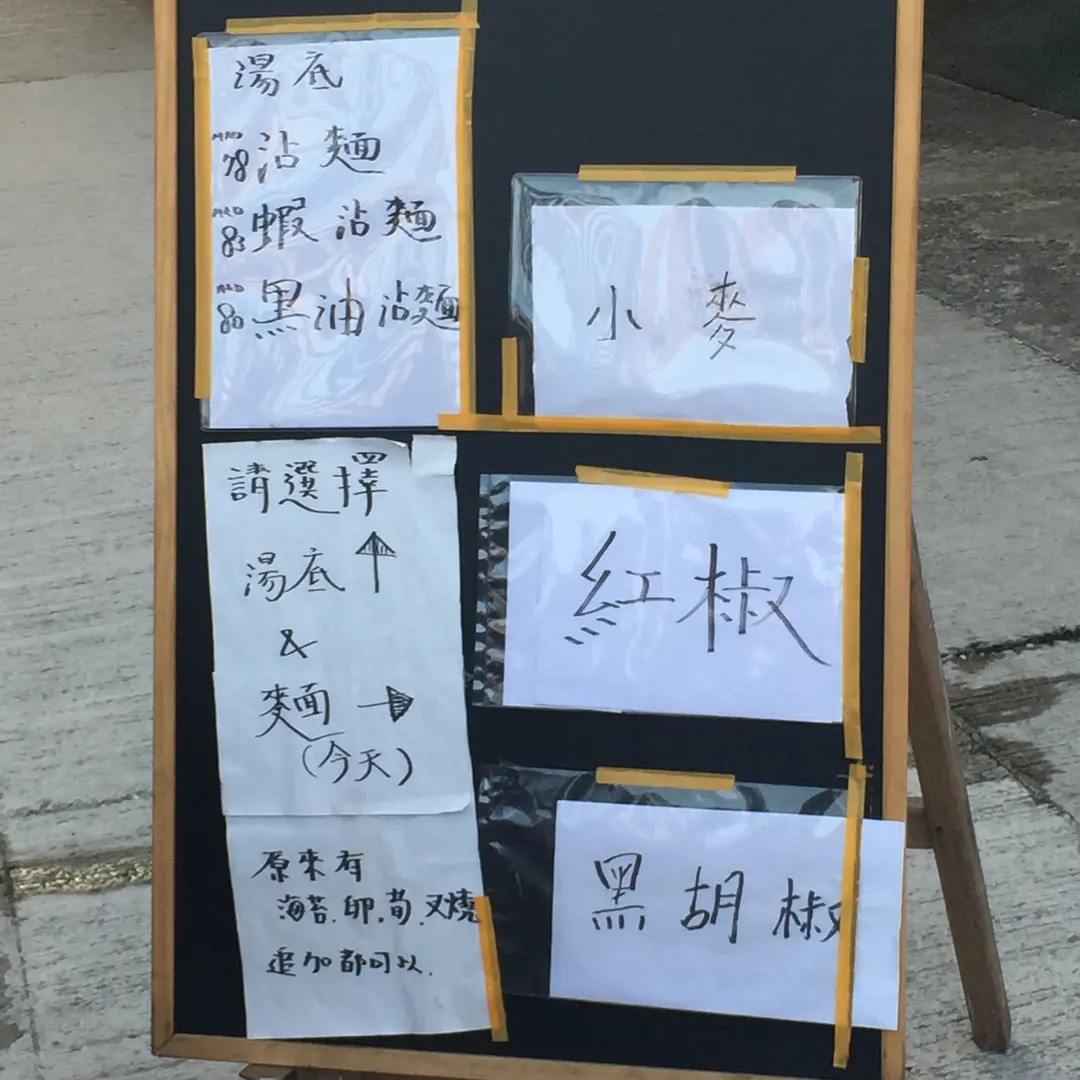 湯底
78 沾麵
83 蝦沾麵
80 黑油沾麵
請選擇
湯底 ↑
&
麵 →
(今天)
原來有
海苔.卵.荀.叉燒
追加都可以.
小麥
紅椒
黑胡椒